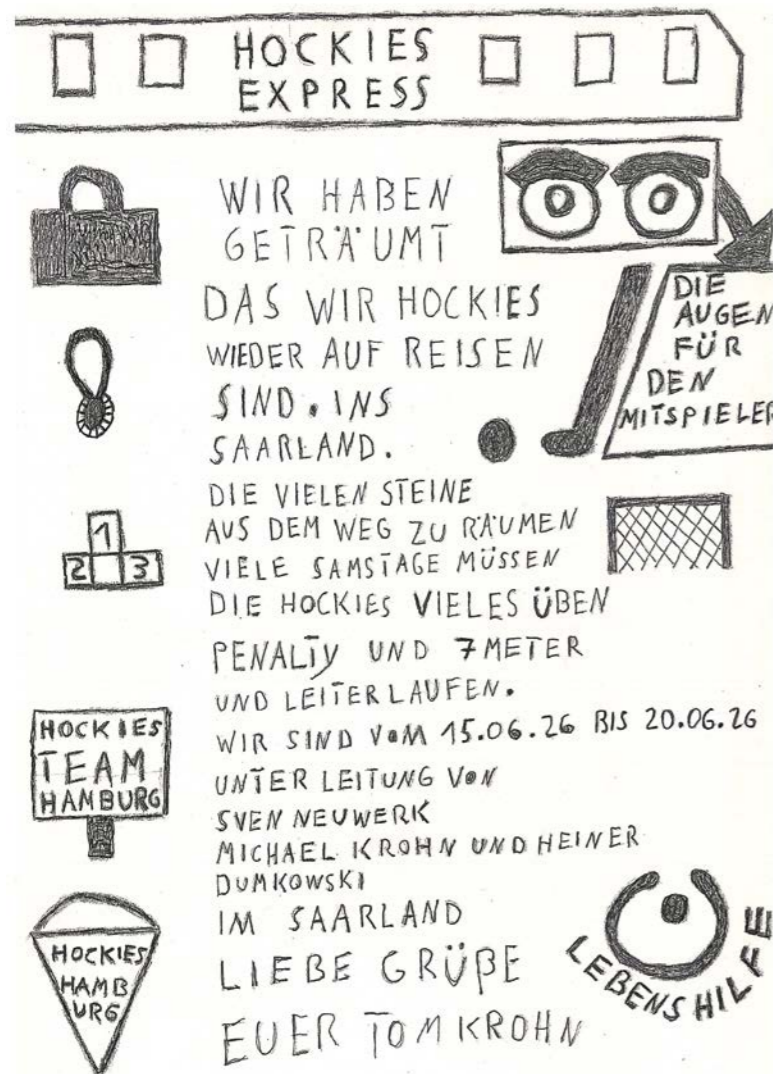 HOCKIES
EXPRESS
WIR HABEN
GETRÄUMT
DAS WIR HOCKIES
WIEDER AUF REISEN
SIND. INS
SAARLAND.
DIE
AUGEN
FÜR
DEN
MITSPIELER
DIE VIELEN STEINE
AUS DEM WEG ZU RÄUMEN
VIELE SAMSTAGE MÜSSEN
DIE HOCKIES VIELES ÜBEN
PENALTY UND 7 METER
UND LEITERLAUFEN.
1
2 3
WIR SIND VOM 15.06.26 BIS 20.06.26
UNTER LEITUNG VON
SVEN NEUWERK
MICHAEL KROHN UND HEINER
DUMKOWSKI
IM SAARLAND
LIEBE GRÜßE
EUER TOM KROHN
HOCKIES
TEAM
HAMBURG
HOCKIES
HAMB
URG
LEBENSHILFE